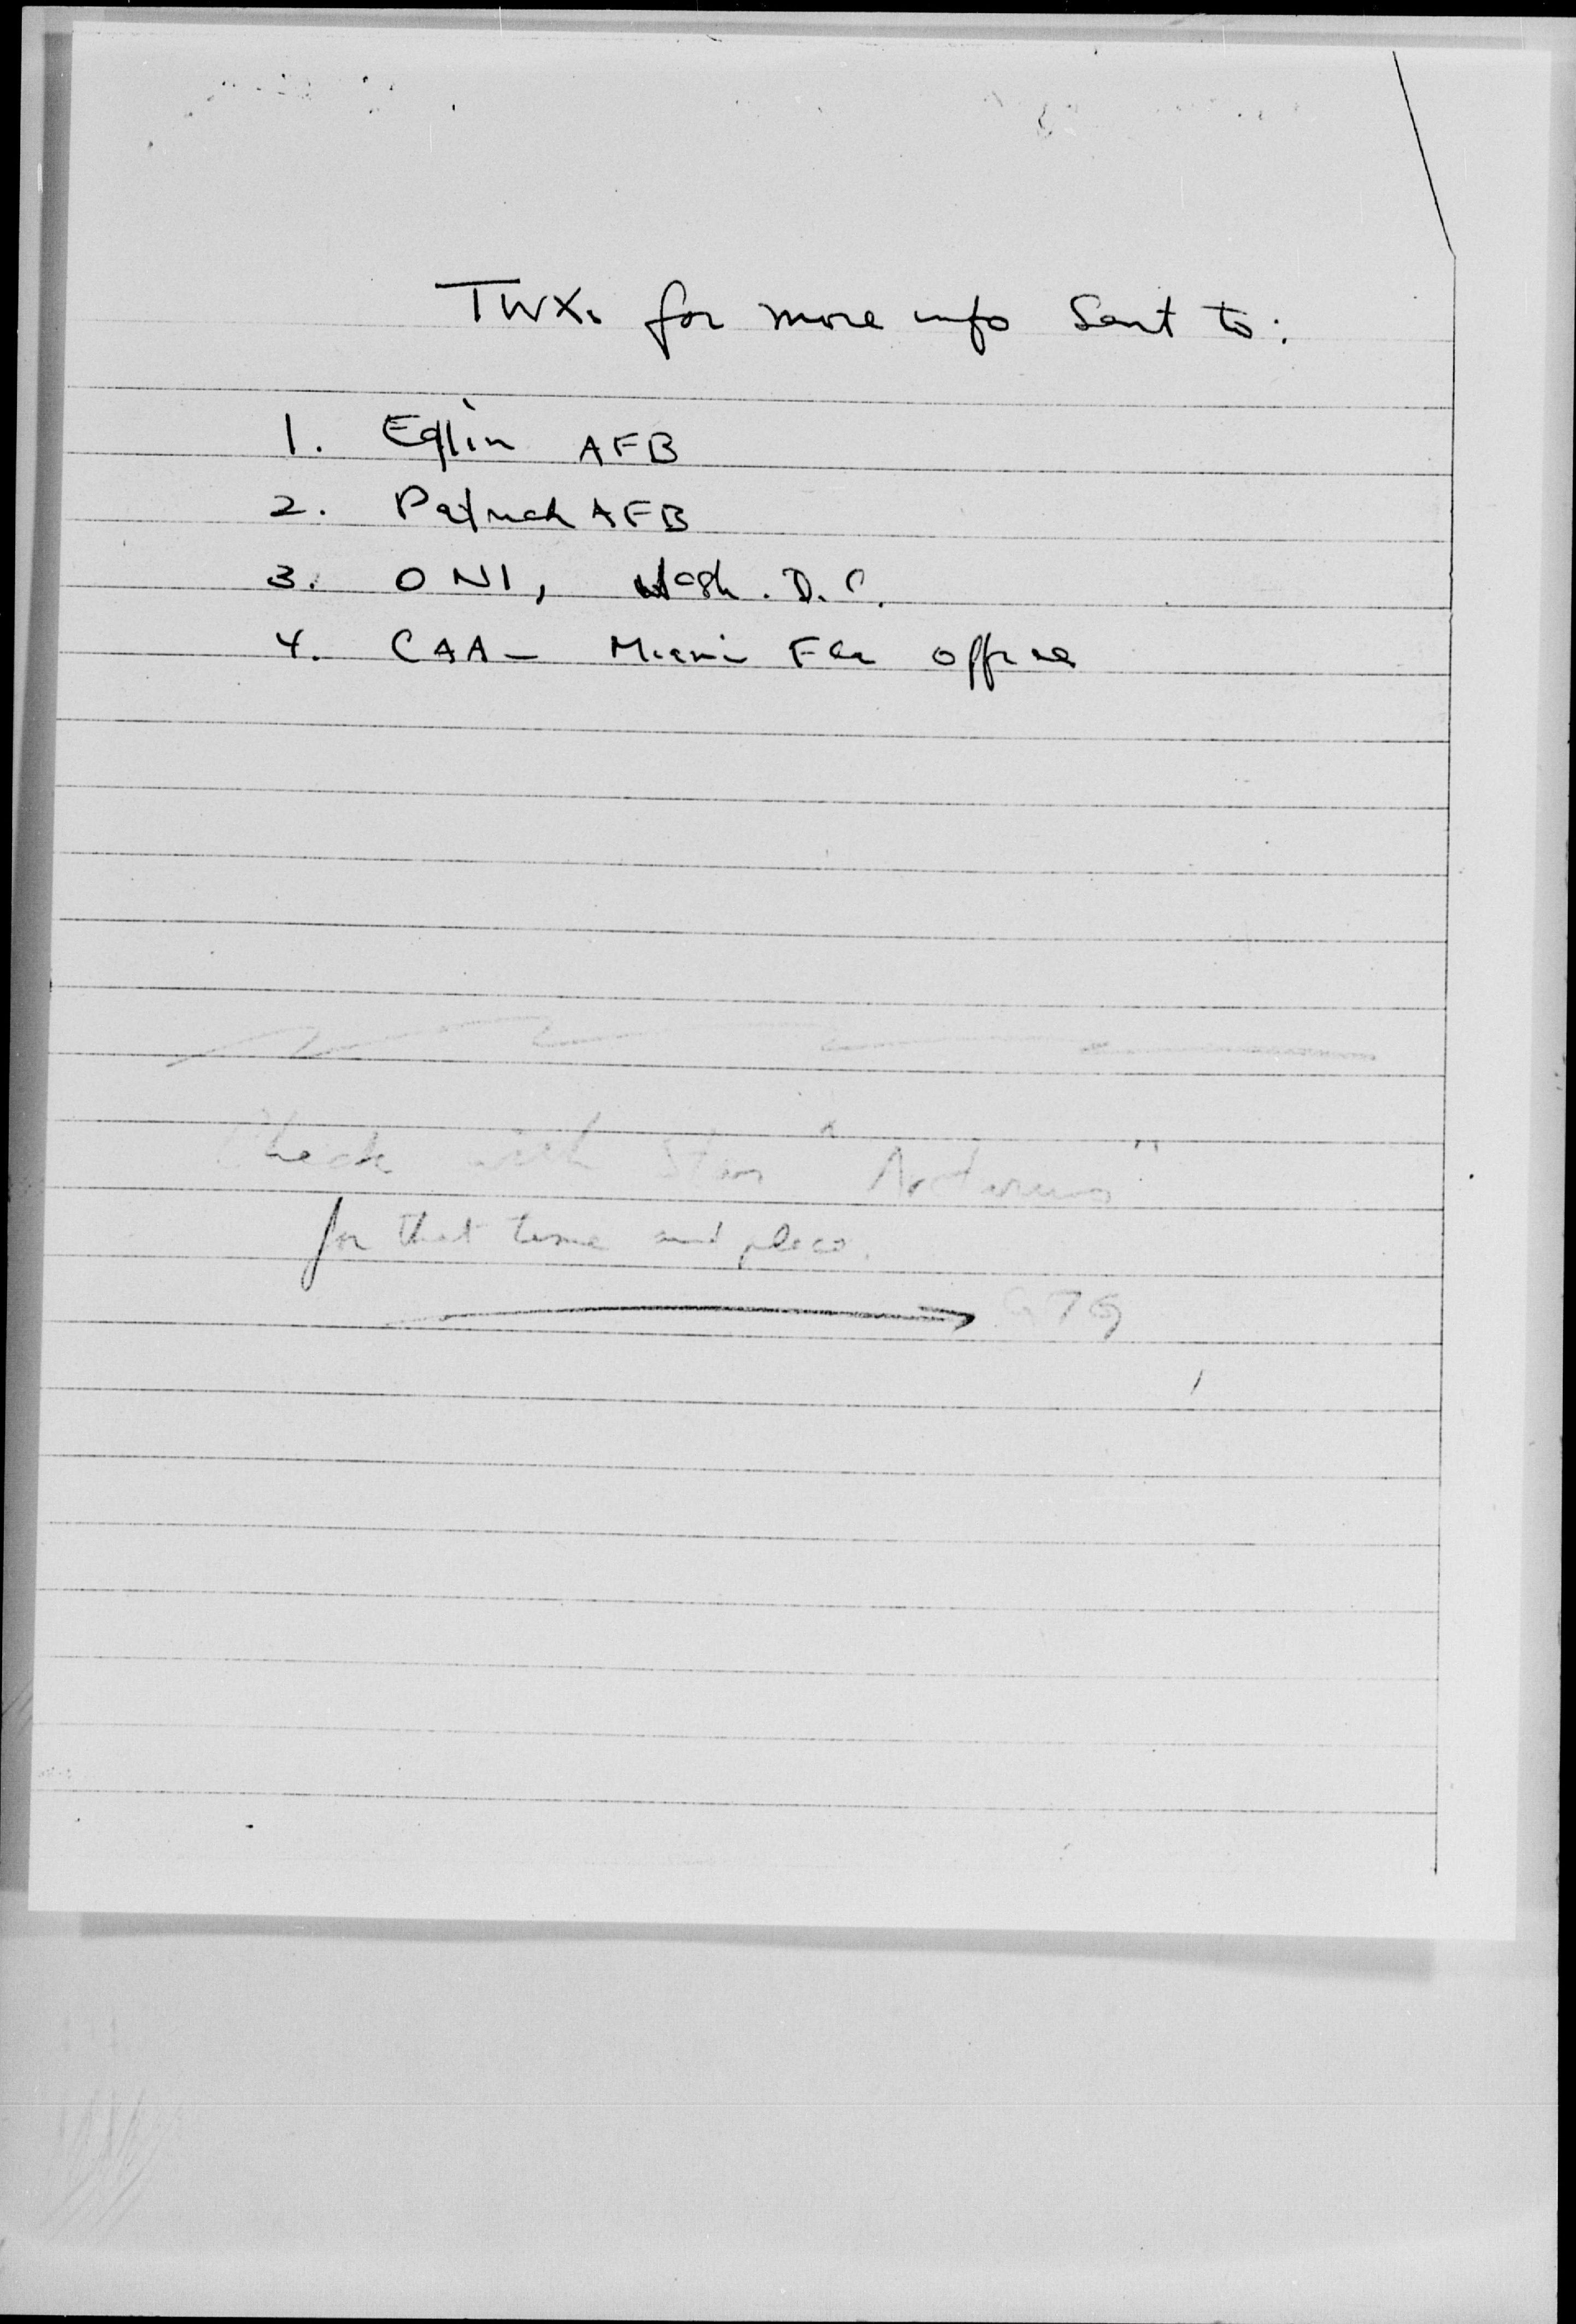 TWX. for more info Sent to:
1. Eglin AFB
2. Patrick AFB
3. ONI, Wash. D.C.
4. CAA - Miami Fla office
Check with Star "Arcturus"
for that time and place.